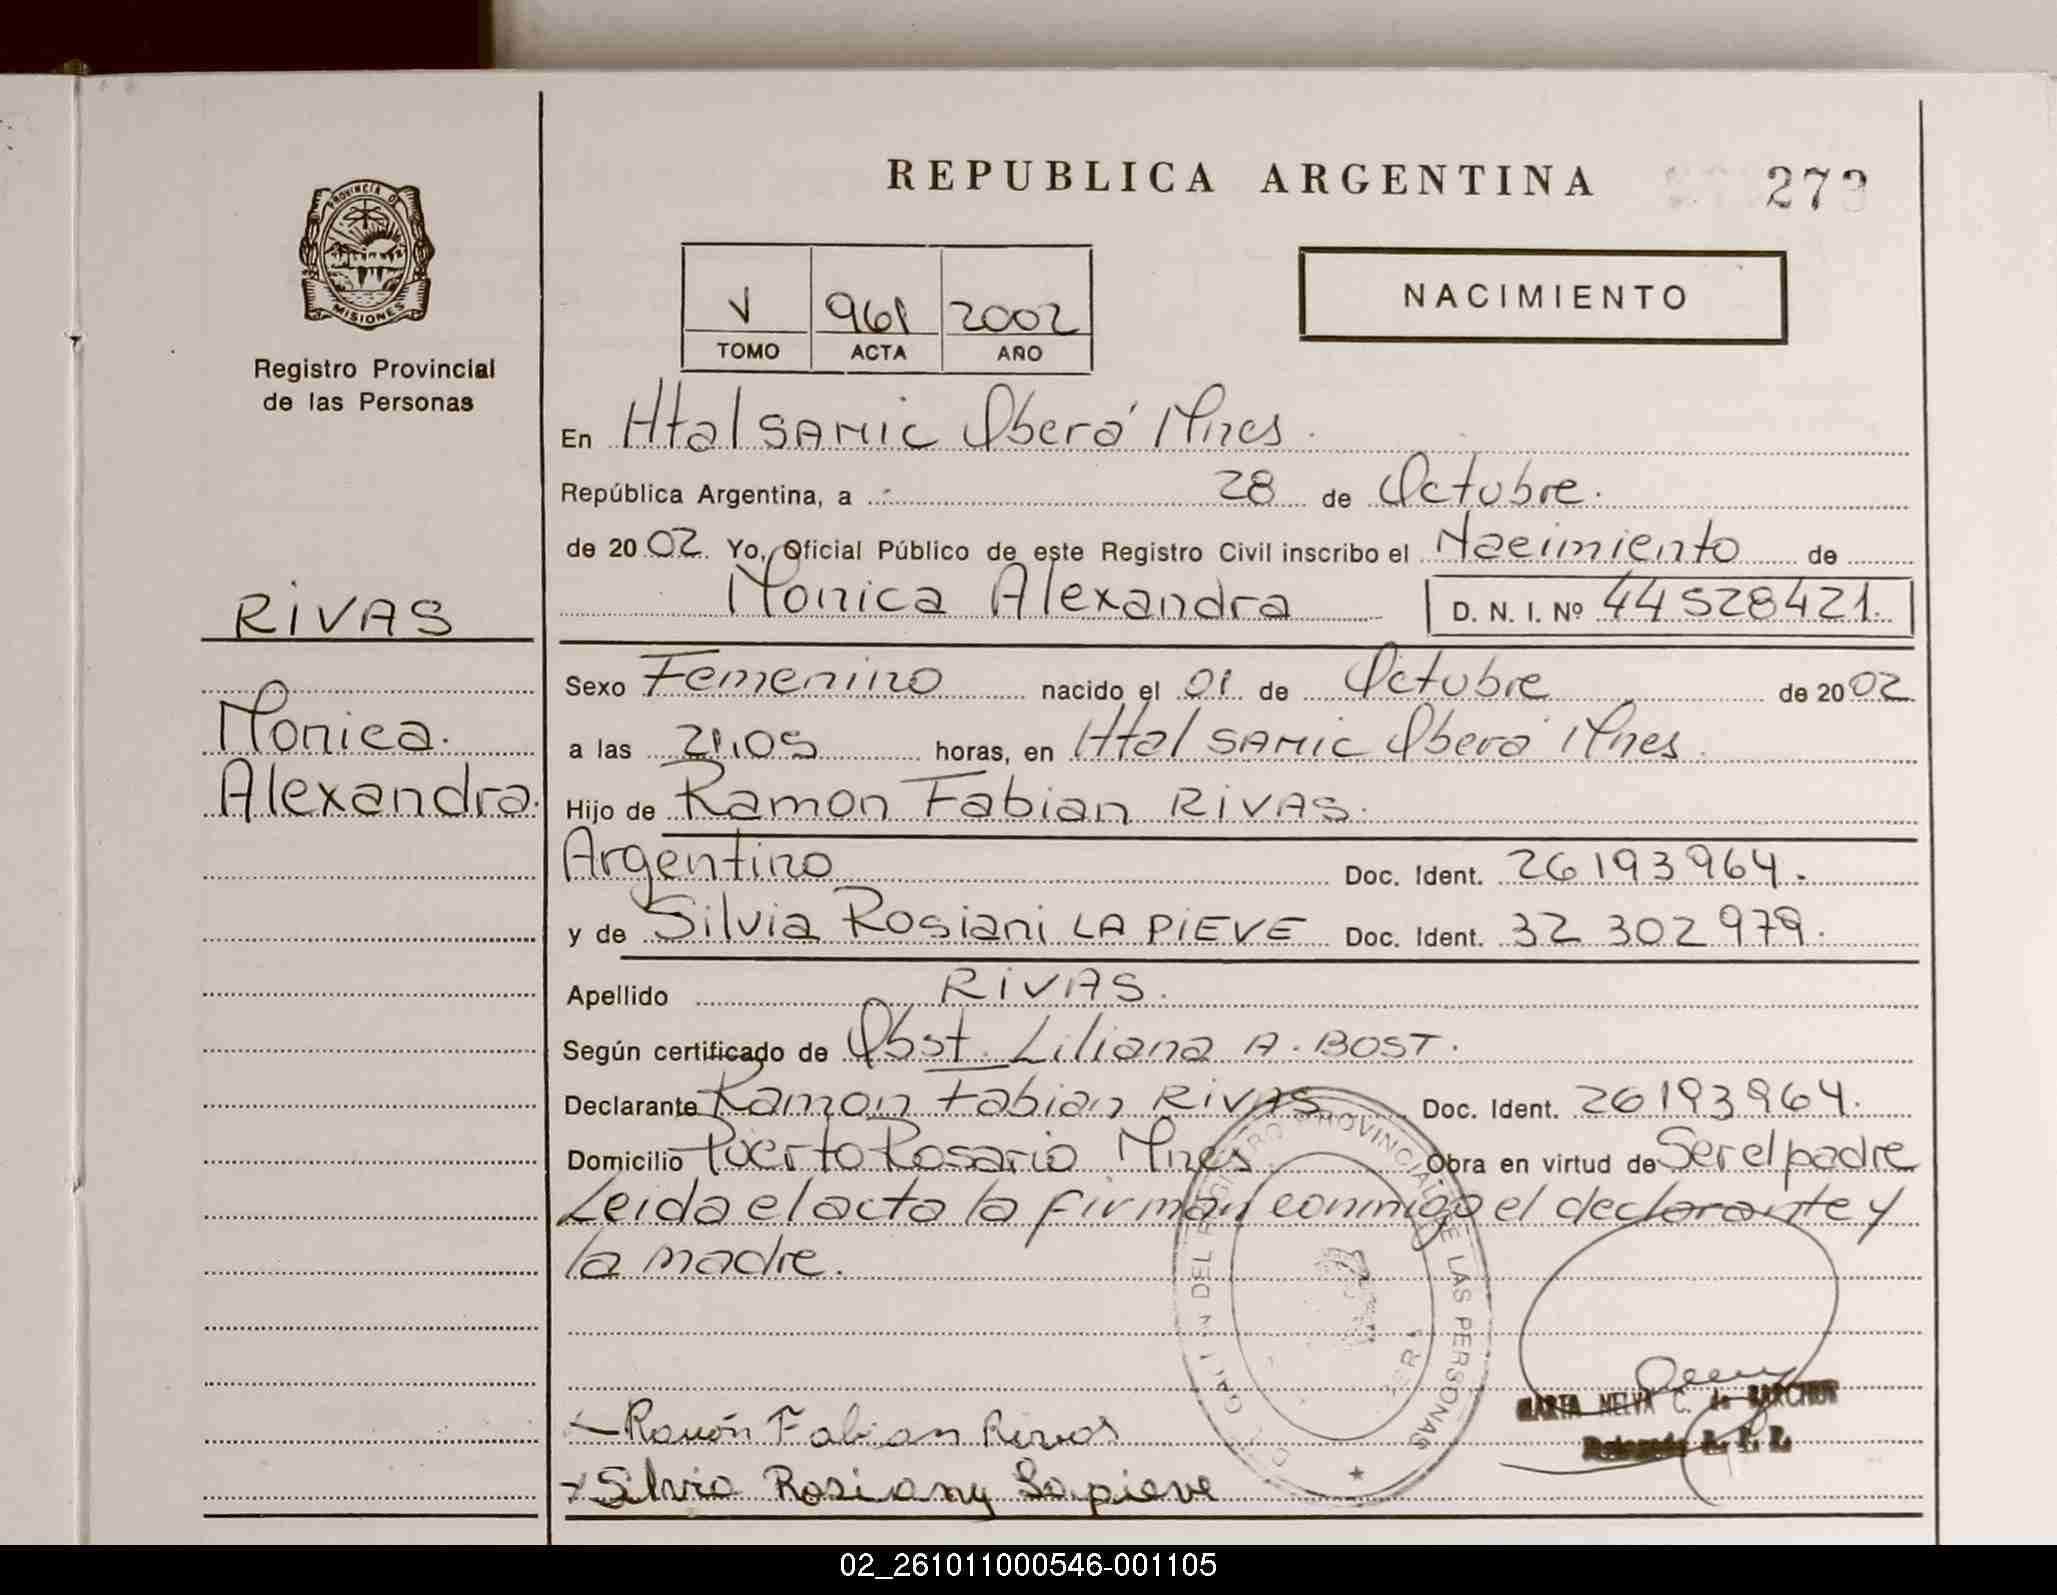 REPUBLICA ARGENTINA
273
PROVINCIA DE
MISIONES
Registro Provincial
de las Personas
V 961 2002
TOMO ACTA AÑO
NACIMIENTO
En Htal SAMIC Oberá Mnes.
República Argentina, a 28 de Octubre.
de 2002. Yo, Oficial Público de este Registro Civil inscribo el Nacimiento de
Monica Alexandra D. N. I. Nº 44528421.
RIVAS
Monica.
Alexandra.
Sexo Femenino nacido el 01 de Octubre de 2002
a las 21,05 horas, en Htal SAMIC Oberá Mnes.
Hijo de Ramon Fabian RIVAS.
Argentino Doc. Ident. 26193964.
y de Silvia Rosiani LA PIEVE Doc. Ident. 32 302 979.
Apellido RIVAS.
Según certificado de Obst. Liliana A. BOST.
Declarante Ramon Fabian RIVAS Doc. Ident. 26193964.
Domicilio Puerto Rosario Mnes Obra en virtud de Ser el padre
Leida el acta la firman conmigo el declarante y
la madre.
DEL REGISTRO PROVINCIAL DE LAS PERSONAS
Ramón Fabian Rivas
Silvia Rosiany Lapieve
MARTA NELVA C. de
02_261011000546-001105